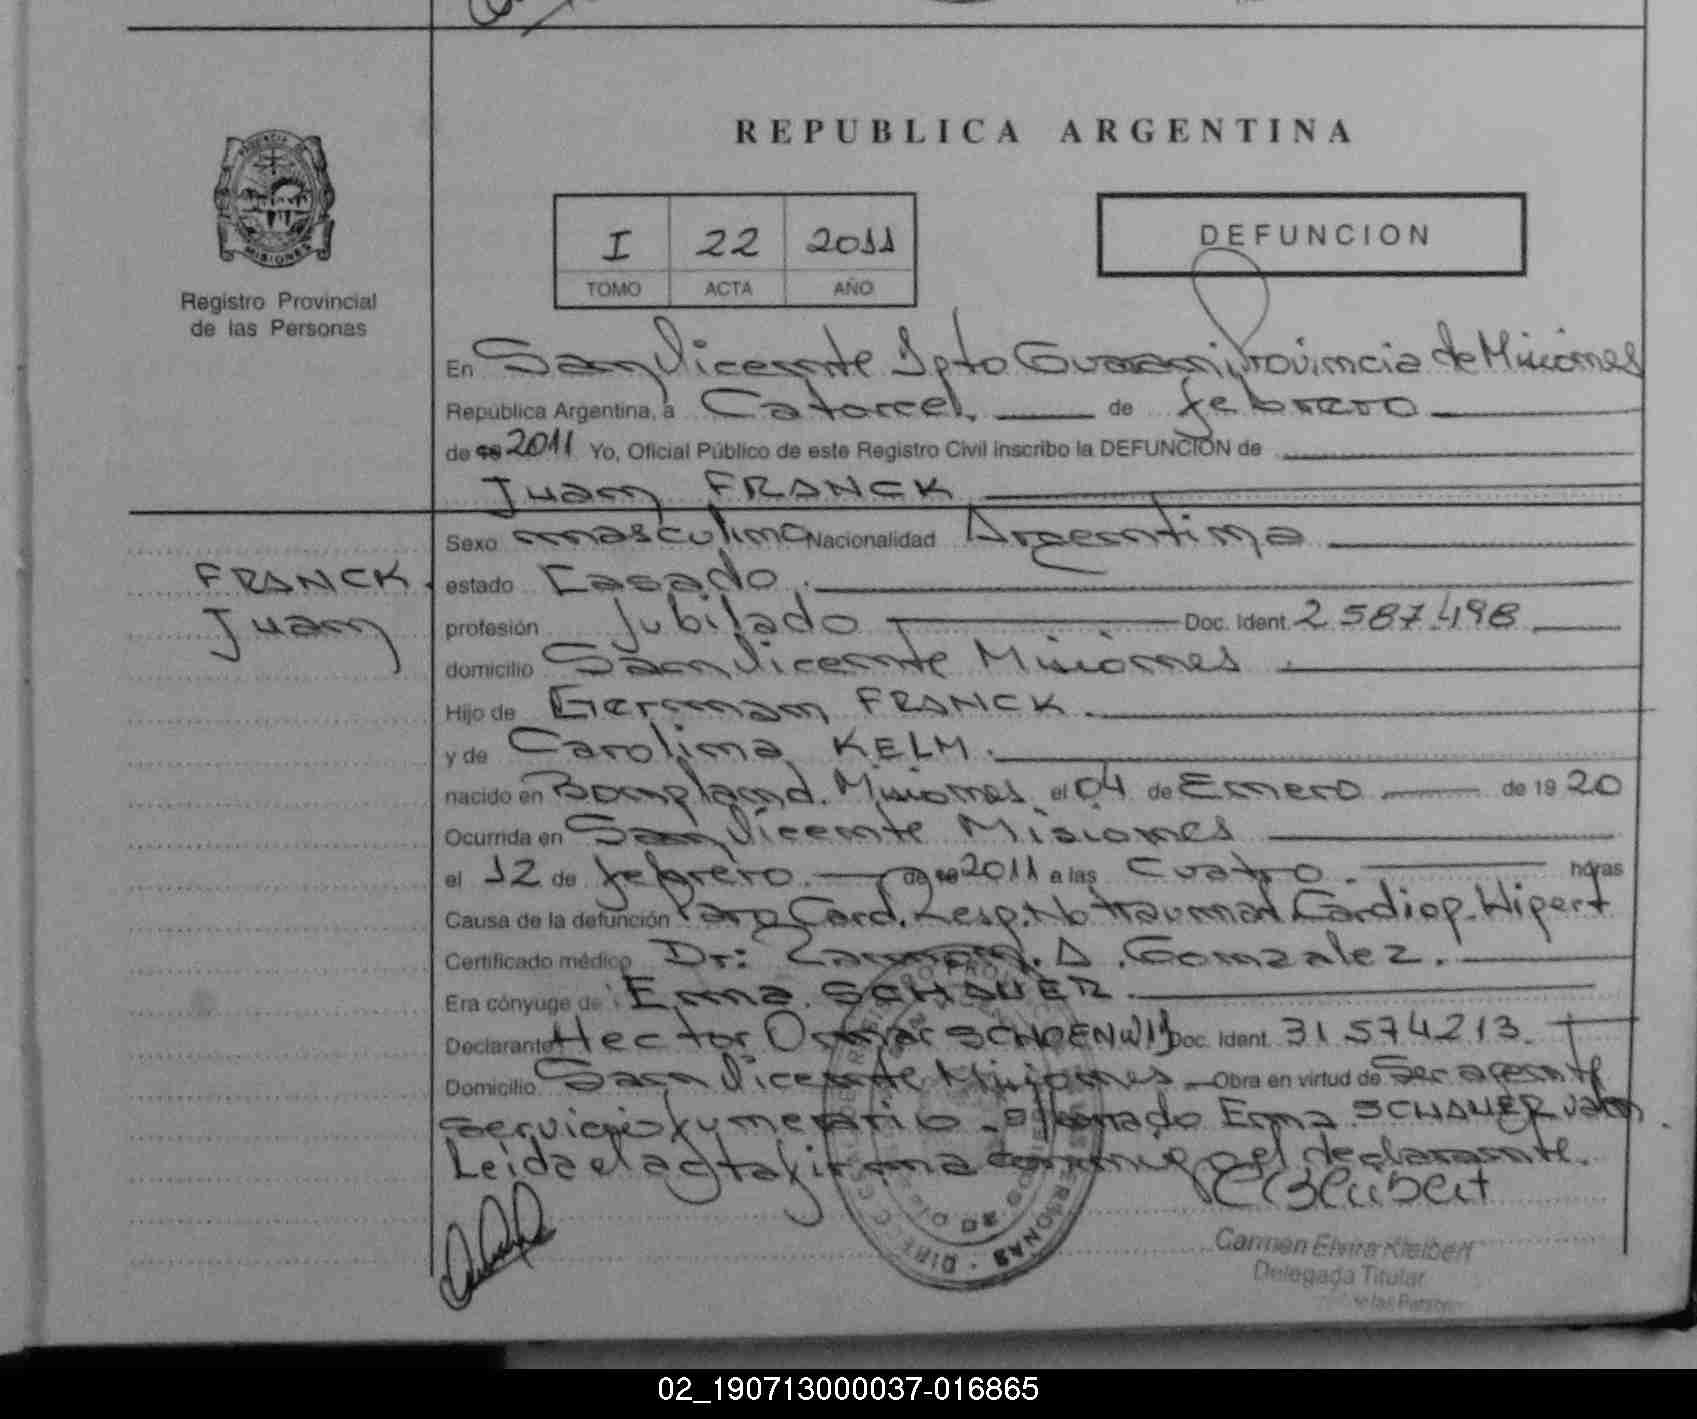 REPUBLICA ARGENTINA
I 22 2011
TOMO ACTA AÑO
DEFUNCION
MISIONES
Registro Provincial
de las Personas
En San Vicente Dpto Guarani Provincia de Misiones
República Argentina, a Catorce de febrero
de 2011 Yo, Oficial Público de este Registro Civil inscribo la DEFUNCION de
Juan FRANCK
Sexo masculino Nacionalidad Argentina
FRANCK
Juan
estado Casado.
profesión Jubilado Doc. Ident. 2.587.498
domicilio San Vicente Misiones
Hijo de German FRANCK
y de Carolina KELM.
nacido en Bompland. Misiones el 04 de Enero de 19 20
Ocurrida en San Vicente Misiones
el 12 de febrero. de 2011 a las Cuatro. horas
Causa de la defunción Paro Card. Resp. No traumat. Cardiop. Hipert
Certificado médico Dr: A. Gomzalez.
Era cónyuge de: Erna SCHAUER.
Declarante Hector Omar Doc. Ident. 31.574.213.
Domicilio San Vicente Misiones Obra en virtud de Ser agente
servicio Erna SCHAUER
Leida el acta firma conmigo el declarante.
Carmen Elvira Kleibert
Delegada Titular
02_190713000037-016865